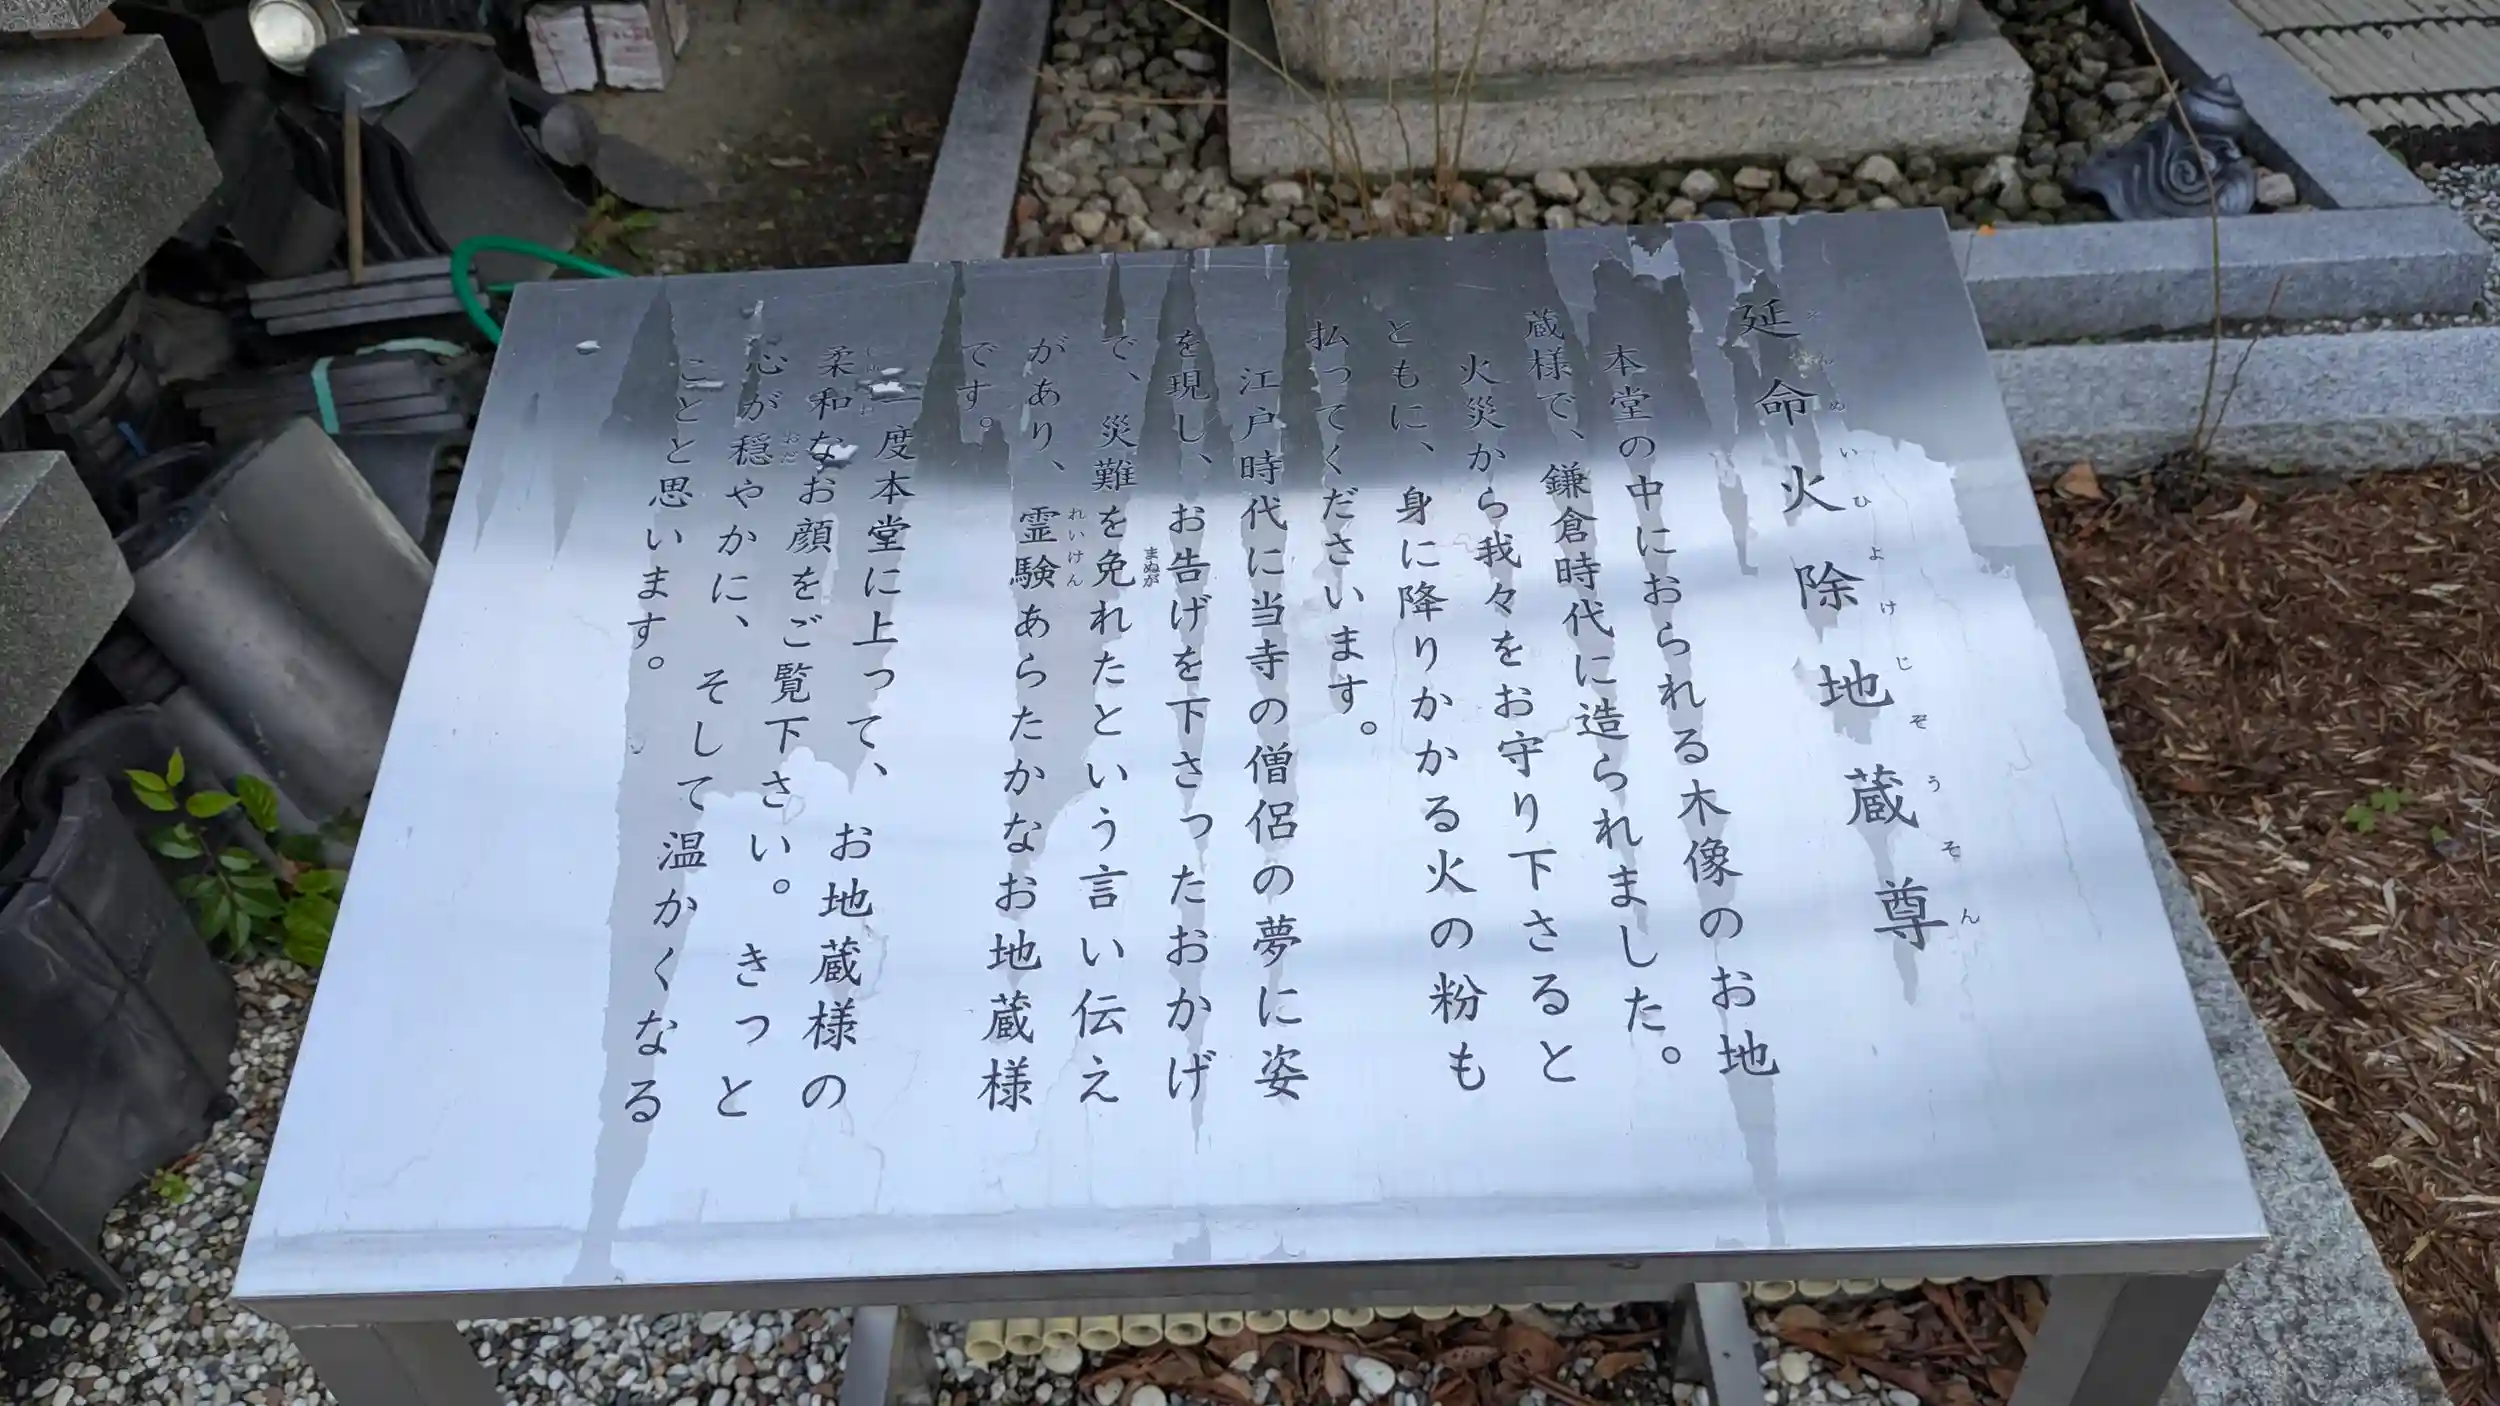 延命火除地蔵尊
えんめいひよけじぞうそん
本堂の中におられる木像のお地
蔵様で、鎌倉時代に造られました。
火災から我々をお守り下さると
ともに、身に降りかかる火の粉も
払ってくださいます。
江戸時代に当寺の僧侶の夢に姿
を現し、お告げを下さったおかげ
で、災難を免れたという言い伝え
まぬが
があり、霊験あらたかなお地蔵様
れいけん
です。
一度本堂に上って、お地蔵様の
柔和なお顔をご覧下さい。きっと
心が穏やかに、そして温かくなる
おだ
ことと思います。